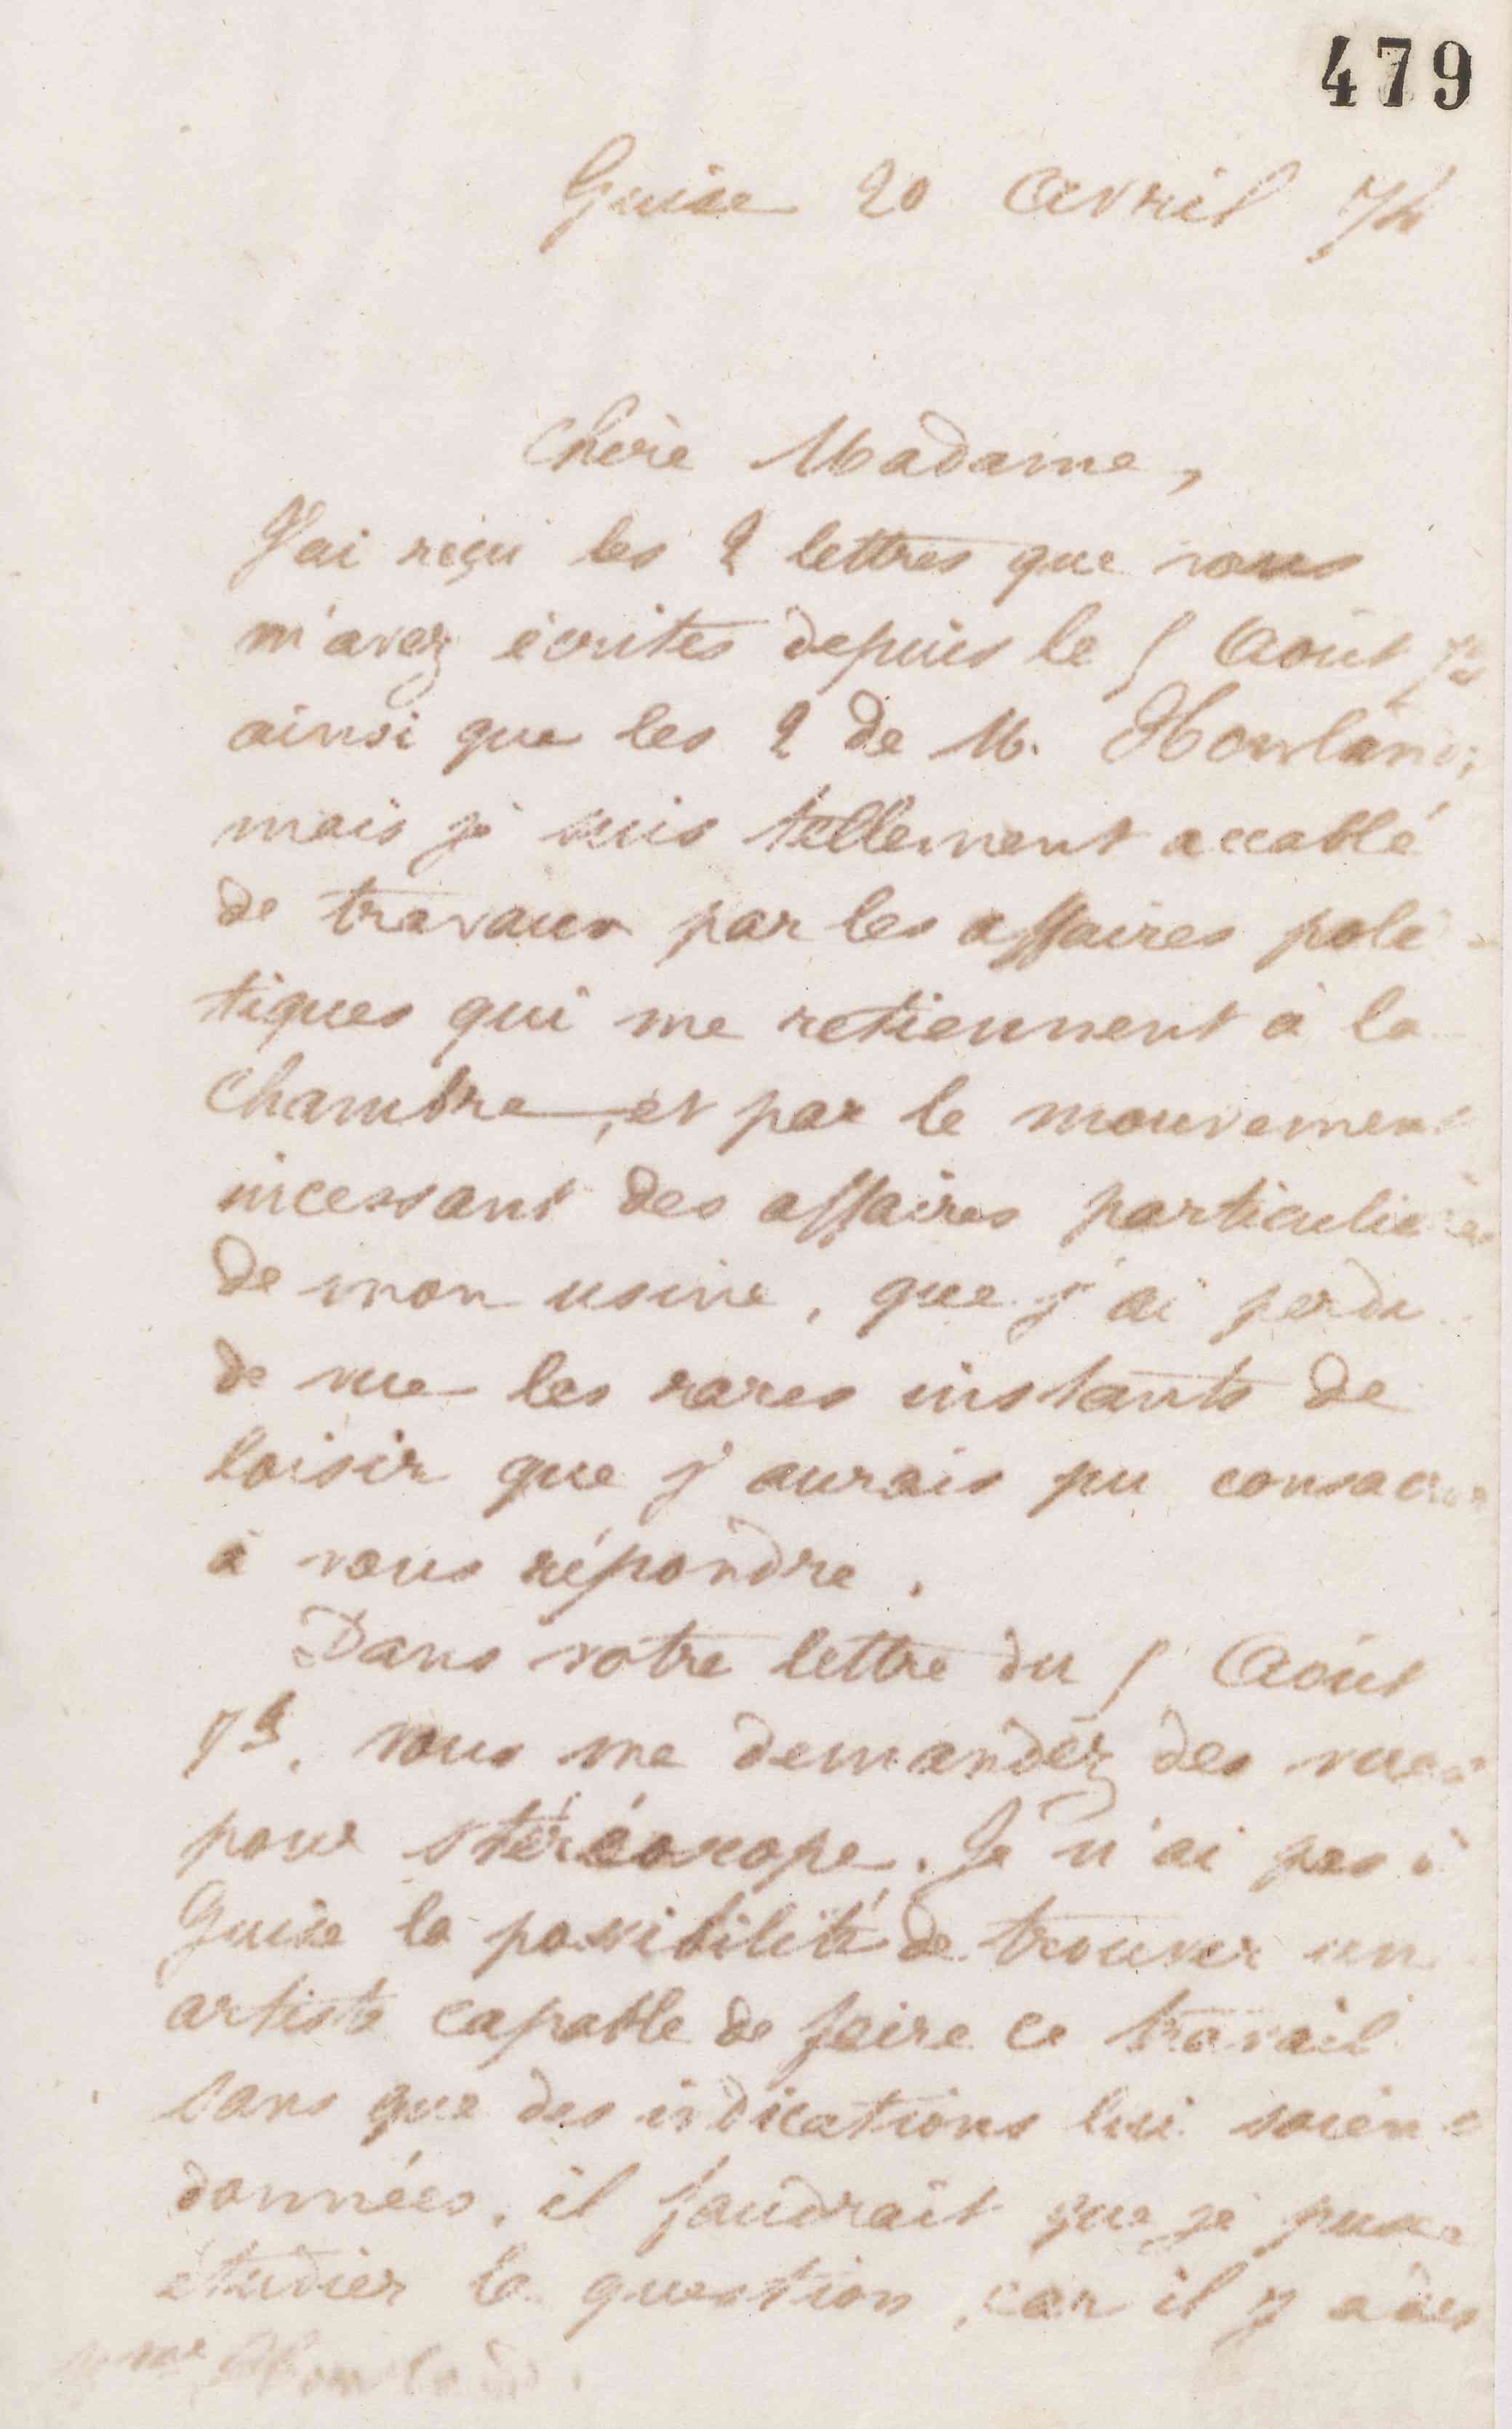 479
Guise 20 Avril 74
Chère Madame,
J'ai reçu les 2 lettres que vous
m'avez écrites depuis le 5 Août
ainsi que les 2 de M. Howland;
mais je suis tellement accablé
de travaux par les affaires poli-
tiques qui me retiennent à la
Chambre, et par le mouvement
incessant des affaires particulières
de mon usine, que j'ai perdu
de vue les rares instants de
loisir que j'aurais pu consacrer
à vous répondre.
Dans votre lettre du 5 Août
73. vous me demandez des vues
pour stéréoscope. Je n'ai pas à
Guise la possibilité de trouver un
artiste capable de faire ce travail
sans que des indications lui soient
données, il faudrait que je pusse
étudier la question, car il y a des
Mme Howland.